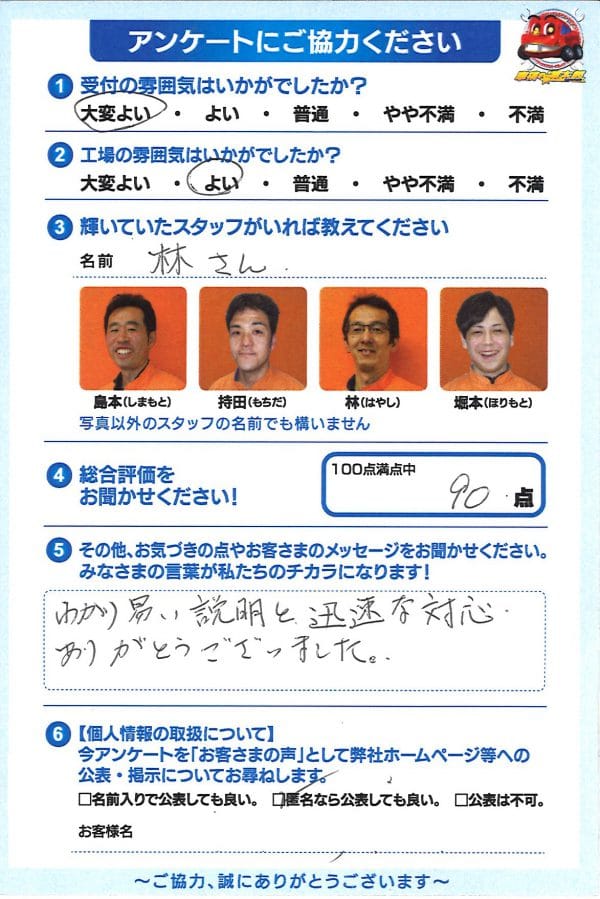 アンケートにご協力ください
1 受付の雰囲気はいかがでしたか?
大変よい ・ よい ・ 普通 ・ やや不満 ・ 不満
2 工場の雰囲気はいかがでしたか?
大変よい ・ よい ・ 普通 ・ やや不満 ・ 不満
3 輝いていたスタッフがいれば教えてください
名前 林さん.
島本(しまもと) 持田(もちだ) 林(はやし) 堀本(ほりもと)
写真以外のスタッフの名前でも構いません
4 総合評価を
お聞かせください!
100点満点中
90 点
5 その他、お気づきの点やお客さまのメッセージをお聞かせください。
みなさまの言葉が私たちのチカラになります!
わかり易い説明と迅速な対応.
ありがとうございました。
6 【個人情報の取扱について】
今アンケートを「お客さまの声」として弊社ホームページ等への
公表・掲示についてお尋ねします。
□名前入りで公表しても良い。 □匿名なら公表しても良い。 □公表は不可。
お客様名
～ご協力、誠にありがとうございます～